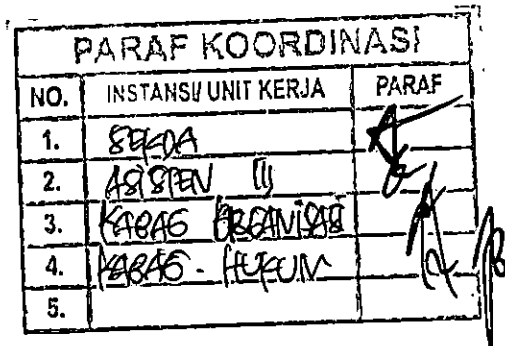 PARAF KOORDINASI
NO. INSTANSI/ UNIT KERJA PARAF
1. SEKDA
2. ASISTEN III
3. KABAG ORGANISASI
4. KABAG - HUKUM
5.